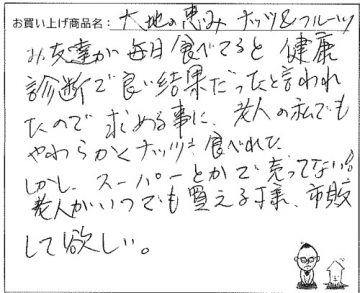 お買い上げ商品名: 大地の恵み ナッツ&フルーツ
み友達が毎日食べてると健康
診断で良い結果だったと言われ
たので求める事に、老人の私でも
やわらかくナッツも食べれた
しかし、スーパーとかで売ってない!
老人がいつでも買える様、市販
して欲しい。